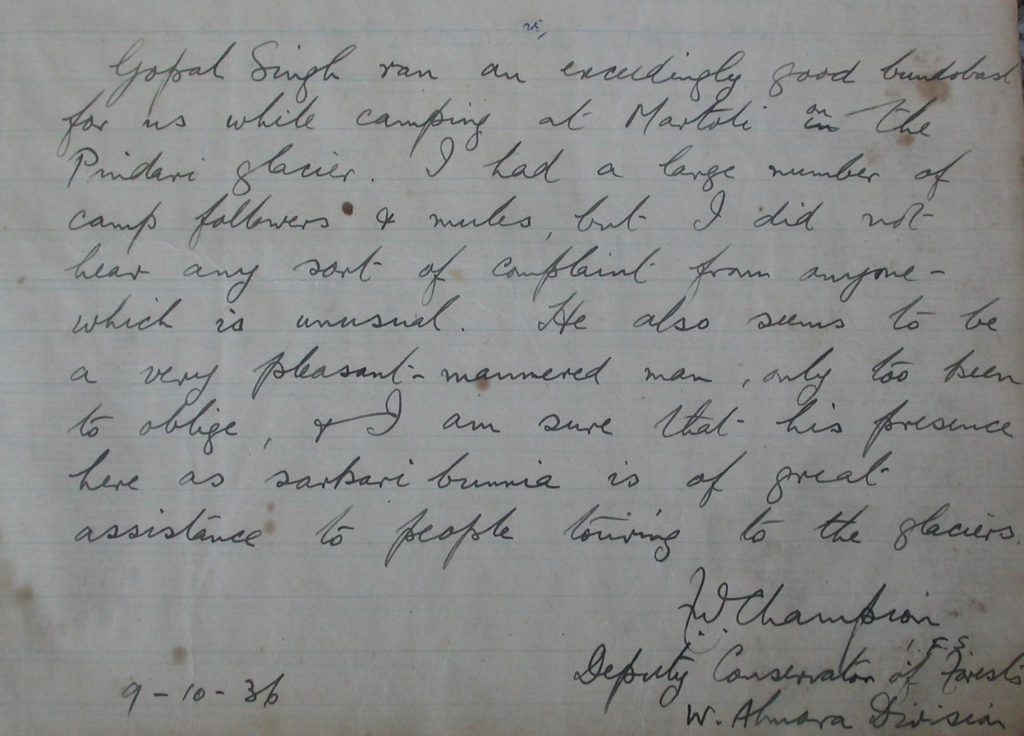 Gopal Singh ran an exceedingly good bundobast
for us while camping at Martoli in on the
Pindari glacier. I had a large number of
camp followers & mules, but I did not
hear any sort of complaint from anyone -
which is unusual. He also seems to be
a very pleasant-mannered man, only too keen
to oblige, & I am sure that his presence
here as sarkari bunnia is of great
assistance to people touring to the glaciers.
FW Champion
I.F.S
Deputy Conservator of Forests
W. Almora Division
9-10-36